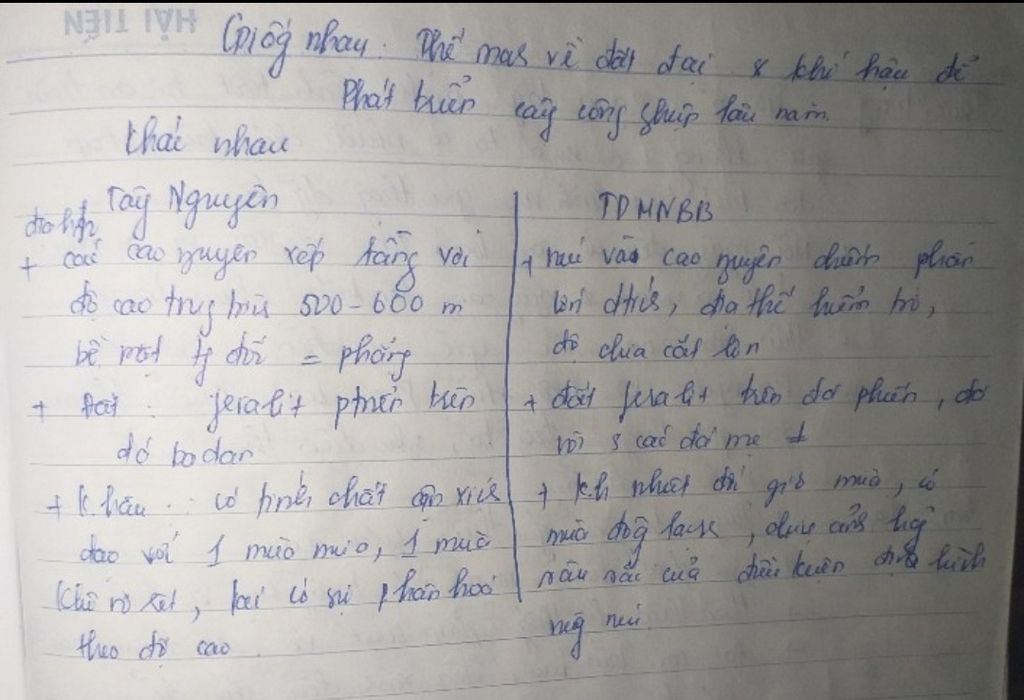 HẢI TIẾN
Giốg nhau. Thế mạh về đất đai & khí hậu để
Phát triển cây công ghiệp lâu năm.
Khác nhau
Tây Nguyên
địa hìh
+ các cao nguyên xếp tầng với
độ cao trug bìh 500-600 m
bề mặt tg đối = phẳng
+ Đất : feralit ptriển trên
đá badan
+ K hậu : có tính chất cận xích
đạo với 1 mùa mưa, 1 mùa
khô rõ rệt, lại có sự phân hoá
theo độ cao
TDMNBB
+ núi và cao nguyên chiếm phần
lớn dtích, địa thế hiểm trở,
độ chia cắt lớn
+ đất feralit trên đá phiến, đá
vôi & các đá mẹ ≠
+ kh nhiệt đới gió mùa, có
mùa đôg lạnh, chịu ảnh hg
sâu sắc của điều kiện địa hình
vùg núi.